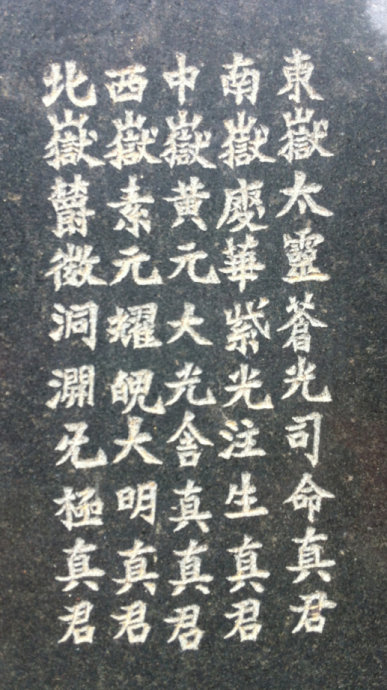 東嶽太靈蒼光司命真君
南嶽慶華紫光注生真君
中嶽黃元大光含真真君
西嶽素元耀魄大明真君
北嶽鬱微洞淵无極真君